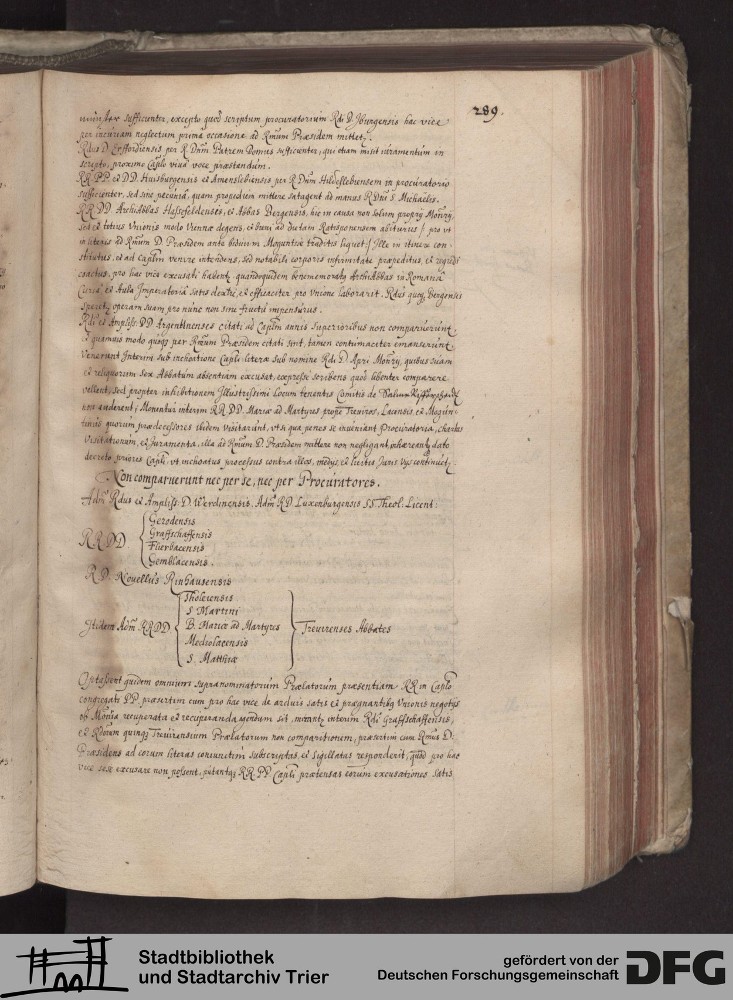 289.
sufficienter, excepto quod scriptum procuratorium Rdi D. Iburgensis hac vice
per incuriam neglectum prima occasione ad Rmum Præsidem mittet.
Rdus D. Erffordiensis per R Dnum Patrem Bonus sufficienter, qui etiam misit iuramentum in
scripto, proximo Caplo viva voce præstandum.
RR PP. et DD. Huisburgensis et Amenslebiensis per R Dnum Hildeslebensem in procuratorio
sufficienter, sed sine pecunia, quam propediem mittere satagent ad manus RDni S. Michaelis.
RR DD ArchiAbbas Hassfeldensis, et Abbas Bergensis, hic in causa non solum proprij Monrij,
sed et totius Unionis modo Viennæ degens, et brevi ad dietam Ratisponensem abiturus / pro vt
in literis ad Rmum D. Præsidem ante biduum Moguntiæ traditis liquet / Ille in itinere con-
stitutus, et ad Caplum venire intendens, sed notabili corporis infirmitate præpeditus, et regredi
coactus, pro hac vice excusati habent, quandoquidem benememoratus ArchiAbbas in Romana
Curia, et Aula Imperatoria satis dextre, et efficaciter pro Unione laborarit. Rdus quoq Bergensis
operam suam pro nunc non sine fructu impensurus.
Rdi et Ampliss: DD Argentinenses citati ad Caplum annis superioribus non comparuerunt,
et quamvis modo quoq per Rmum Præsidem citati sint, tamen contumaciter emanserunt.
Venerunt Interim sub inchoatione Capli literæ sub nomine Rdi D. Apri Monrij, quibus suam
et reliquorum sex Abbatum absentiam excuset, expresse scribens quod libenter comparere
vellent, sed propter inhibitionem Illustrissimi Locum tenentis Comitis de Salm
non auderent; Monentur interim RR DD. Mariæ ad Martyres prope Treviros, Lacensis et Mogun-
tinus quorum prædecessores ibidem visitarunt, vt si qua penes se inveniant Procuratoria, chartas
Visitationum, et Iuramenta, illa ad Rmum D. Præsidem mittere non negligant, inhærentq dato
decreto prioris Capli, vt inchoatus processus contra illos, medijs, et licitis Juris vijs continuet.
Non comparuerunt nec per se, nec per Procuratores.
Adm Rdus et Ampliss: D. Werdinensis. Adm RD Luxenburgensis SS Theol: Licent:
RRDD
Gerodensis
Graffschaffensis
Flierbacensis
Gemblacensis.
R. D. Novellus Rinhausensis
Itidem Adm RRDD
Tholeiensis
S Martini
B. Mariæ ad Martyres
Mediolacensis
S. Matthiæ
Trevirenses Abbates
Optassent quidem omnium supranominatorum Prælatorum præsentiam RR in Caplo
congregati PP. præsertim cum pro hac vice de arduis satis et prægnantibq Unionis negotijs
ob Monria recuperata et recuperanda agendum sit, interim Rdi Graffschaffensis,
et RRorum quinq Trevirensium Prælatorum non comparitionem, præsertim cum Rmus D.
Præsidens ad eorum literas coniunctim subscriptas, et sigillatas responderit, quod pro hac
vice sese excusare non possent, putantq RR PP Capli prætensas eorum excusationes satis
Stadtbibliothek
und Stadtarchiv Trier
gefördert von der
Deutschen Forschungsgemeinschaft
DFG